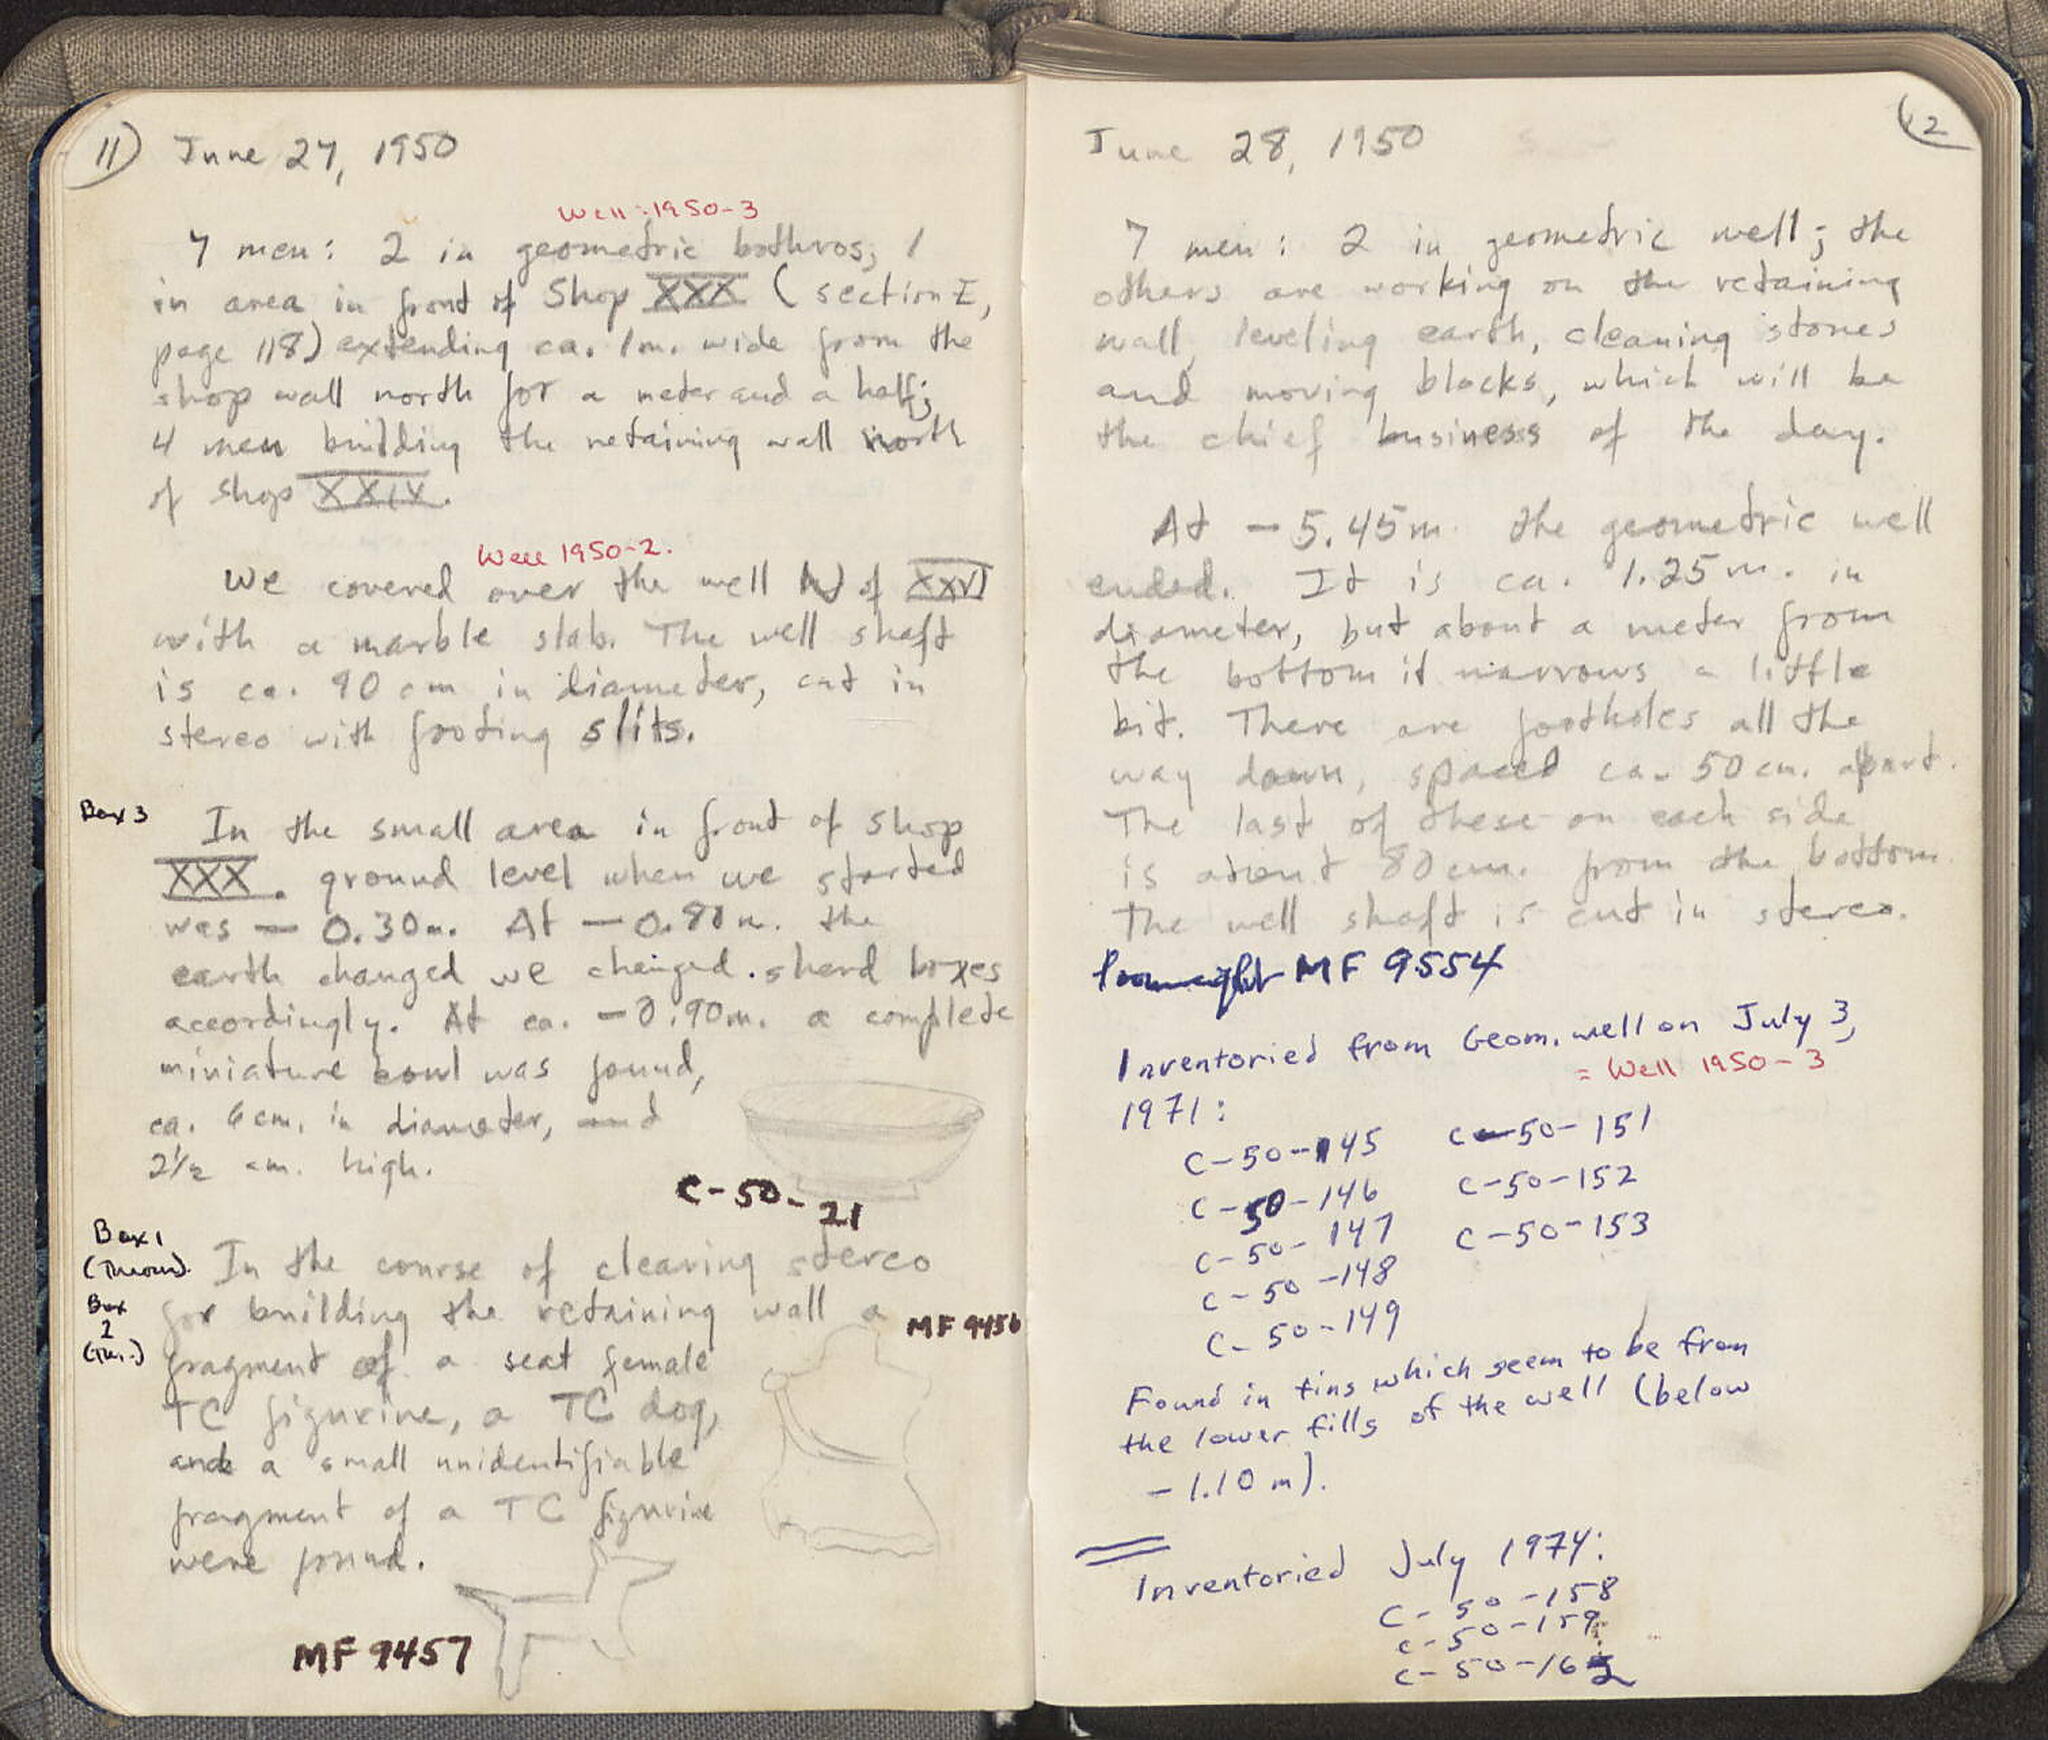 11) June 27, 1950
Well: 1950-3
7 men: 2 in geometric bothros; 1
in area in front of Shop XXX (section I,
page 118) extending ca. 1m. wide from the
shop wall north for a meter and a half;
4 men building the retaining wall north
of Shop XXIV.
Well 1950-2.
We covered over the well N of XXVI
with a marble slab. The well shaft
is ca. 90 cm in diameter, cut in
stereo with footing slits.
Box 3
In the small area in front of shop
XXX. ground level when we started
was – 0.30m. At – 0.80m. the
earth changed we changed sherd boxes
accordingly. At ca. –0.90m. a complete
miniature bowl was found,
ca. 6 cm. in diameter, and
2 1/2 cm. high.
C-50-21
Box 1
(Thrown).
Box
2
(Thr.)
In the course of clearing stereo
for building the retaining wall a
MF 9456
fragment of a seat female
TC figurine, a TC dog,
and a small unidentifiable
fragment of a TC figurine
were found.
MF 9457
12
June 28, 1950
7 men: 2 in geometric well; the
others are working on the retaining
wall, leveling earth, cleaning stones
and moving blocks, which will be
the chief business of the day.
At – 5.45m. the geometric well
ended. It is ca. 1.25m. in
diameter, but about a meter from
the bottom it narrows a little
bit. There are footholes all the
way down, spaced ca. 50 cm. apart.
The last of these on each side
is about 80cm. from the bottom.
The well shaft is cut in stereo.
loomweight MF 9554
Inventoried from Geom. well on July 3,
= Well 1950-3
1971:
C-50-145 C-50-151
C-50-146 C-50-152
C-50-147 C-50-153
C-50-148
C-50-149
Found in tins which seem to be from
the lower fills of the well (below
– 1.10 m).
Inventoried July 1974:
C-50-158
C-50-159
C-50-162